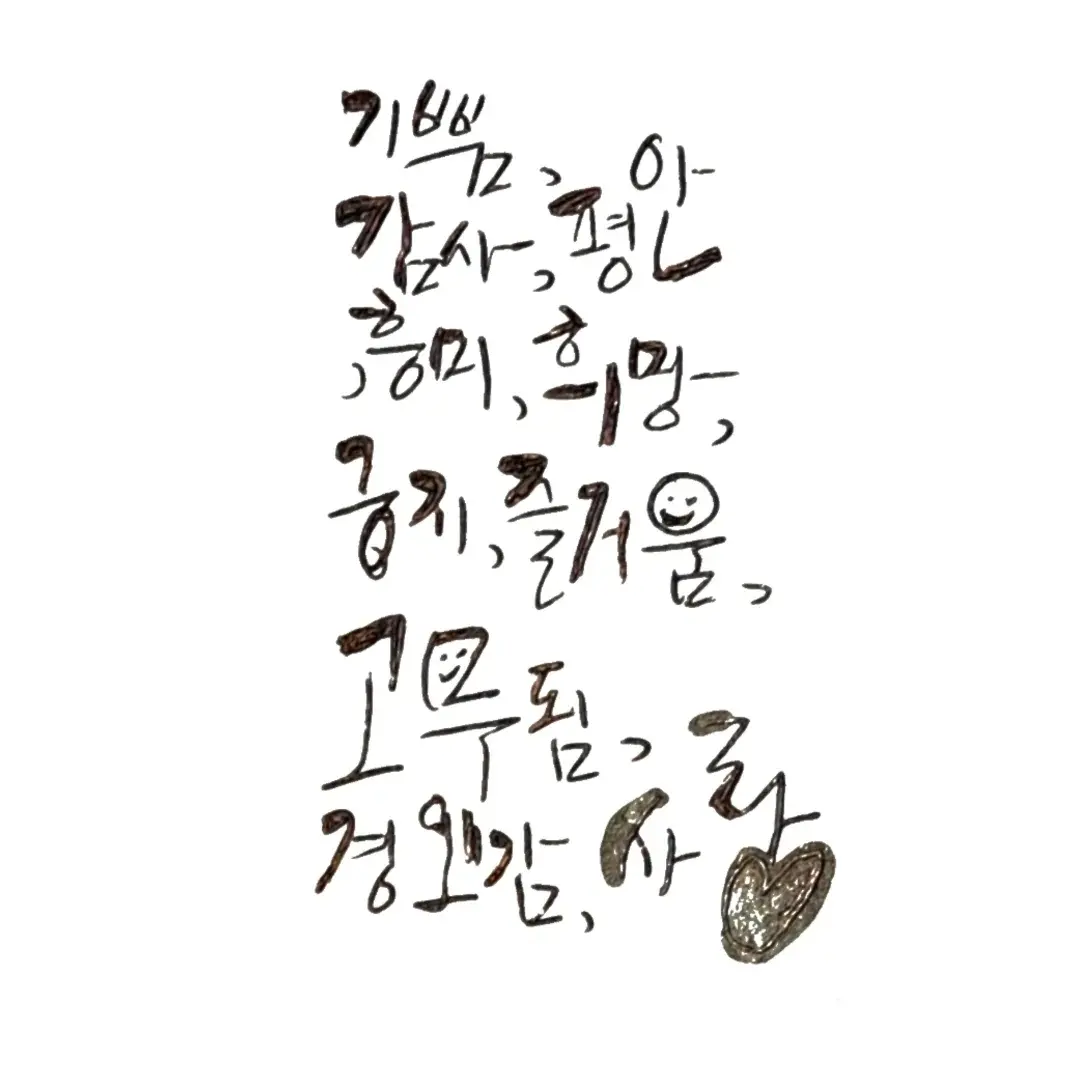 기쁨,
감사, 평안
, 흥미, 희망,
긍지, 즐거움,
고무됨,
경외감, 사랑